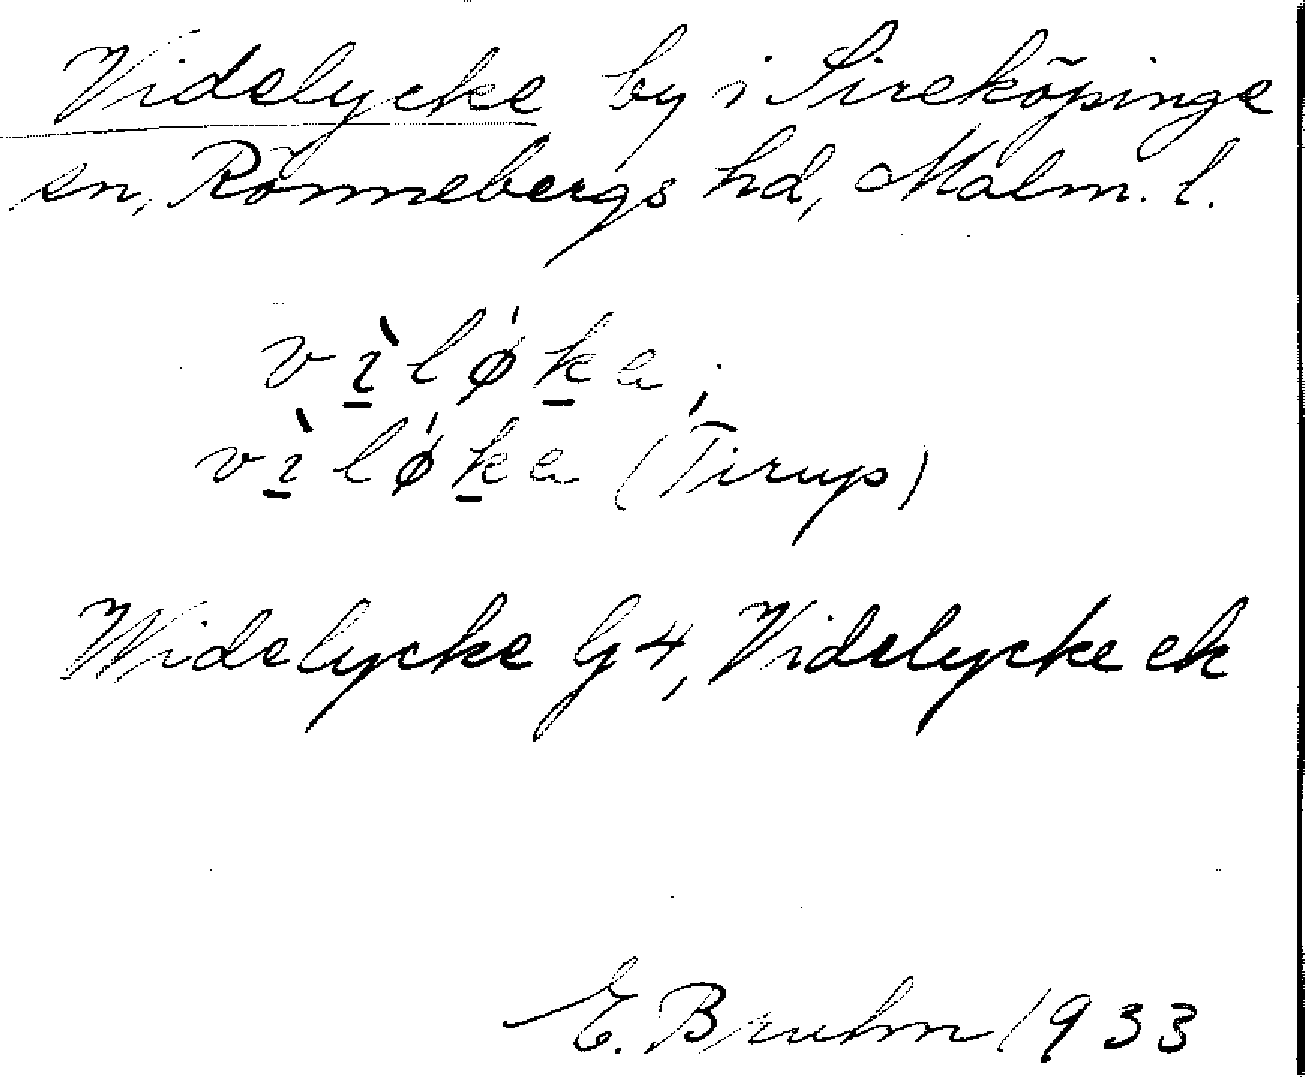 Videlycke by i Sireköpinge
sn, Rönnebergs hd, Malm. l.
vı̠̀lø̍k̠a,
vı̠̀lø̍k̠a (Tirup)
Widelycke G 4, Videlycke ek
E. Bruhn 1933